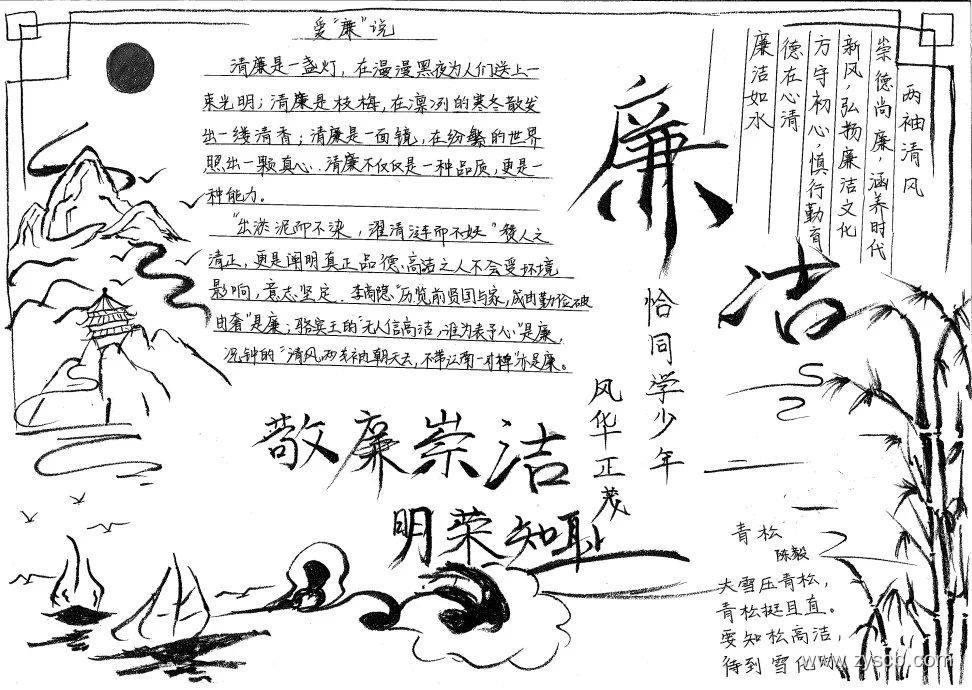 爱“廉”说
清廉是一盏灯，在漫漫黑夜为人们送上一
束光明；清廉是枝梅，在凛冽的寒冬散发
出一缕清香；清廉是一面镜，在纷繁的世界
照出一颗真心。清廉不仅仅是一种品质，更是一
种能力。
“出淤泥而不染，濯清涟而不妖”赞人之
清正，更是阐明真正品德高洁之人不会受环境
影响，意志坚定。李商隐“历览前贤国与家，成由勤俭破
由奢”是廉；骆宾王的“无人信高洁，谁为表予心”是廉，
况钟的“清风两袖朝天去，不带江南一寸棉”亦是廉。
廉洁
两袖清风
崇德尚廉，涵养时代
新风，弘扬廉洁文化
方守初心，慎行勤育
德在心清
廉洁如水
恰同学少年
风华正茂
敬廉崇洁
明荣知耻
青松
陈毅
大雪压青松，
青松挺且直。
要知松高洁，
待到雪化时
www.zyscb.com